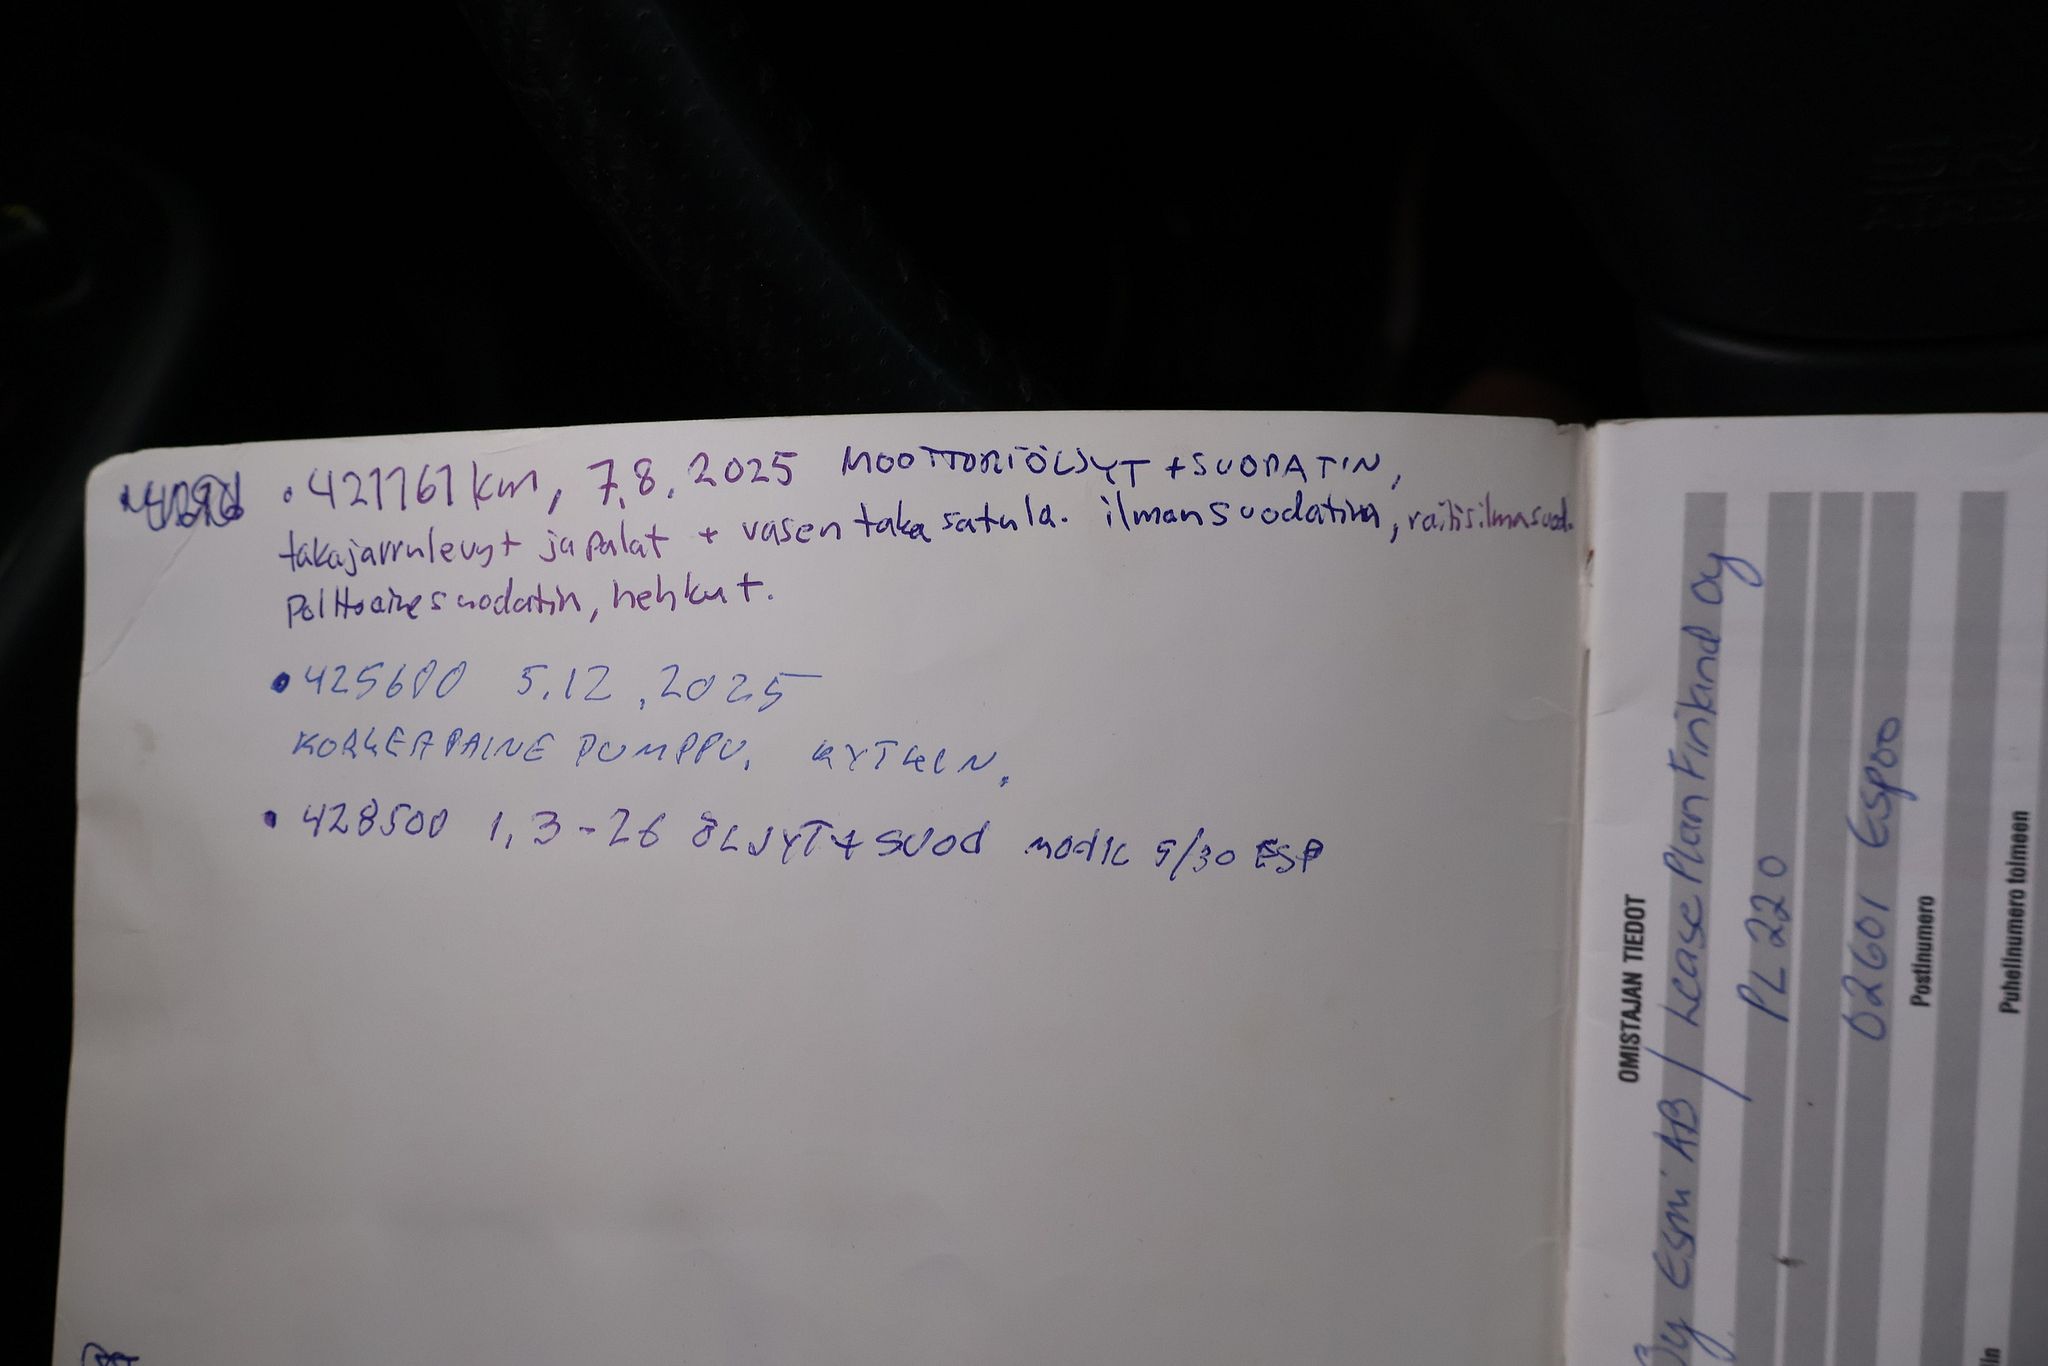 • 421161 km, 7.8.2025 MOOTTORIÖLJYT + SUODATIN,
takajarrulevyt ja palat + vasen taka satula. ilmansuodatin, raitisilmasuod.
Polttoainesuodatin, hehkut.
• 425600 5.12.2025
KORKEAPAINE PUMPPU. KYTKIN.
• 428500 1.3-26 ÖLJYT + SUOD 5/30 ESP
OMISTAJAN TIEDOT
Oy Esmi AB / Lease Plan Finland Oy
PL 220
02601 Espoo
Postinumero
Puhelinnumero toimeen